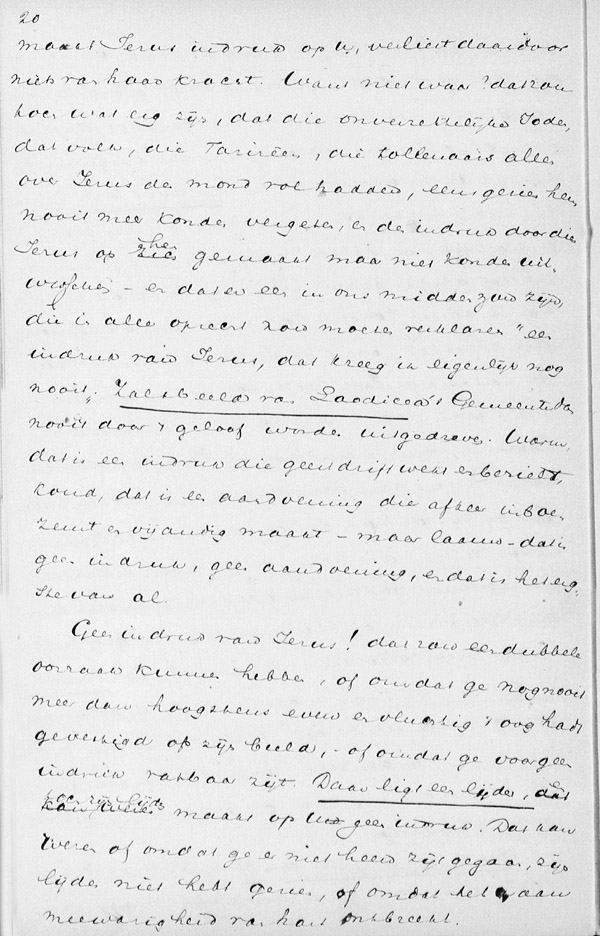 20
maakt Jezus indruk op u, verliest daardoor
niets van haar kracht. Want niet waar? dat zou
toch wat erg zijn, dat die onverzettelijke Joden,
dat volk, die Farizeën, die tollenaars allen
over Jezus den mond vol hadden, eens gezien hem
nooit meer konden vergeten, en den indruk door die
Jezus op hen gemaakt maar niet konden uit-
wisschen – en dat er een in ons midden zou zijn,
die in alle oprecht zou moeten verklaren "een
indruk van Jezus, dat kreeg ik eigenlijk nog
nooit". Zal 't beeld van Laodicea's Gemeente dan
nooit door 't geloof worden uitgedreven. Warm,
dat is een indruk die geestdrift wekt en bezielt,
koud, dat is een aandoening die afkeer inboe-
zemt en vijandig maakt – maar laauw – dat is
geen indruk, geen aandoening, en dat is het erg-
ste van al.
Geen indruk van Jezus! dat zou een dubbele
oorzaak kunnen hebben, of omdat ge nog nooit
meer dan hoogstens even en vluchtig 't oog hadt
gevestigd op zijn beeld, – of omdat ge voor geen
indruk vatbaar zijt. Daar ligt een lijder, dat
hoe zijn lijden maakt op u geen indruk. Dat kan
wezen of omdat ge er niet heen zijt gegaan, zijn
lijden niet hebt gezien, of omdat het u aan
meewarigheid van hart ontbreekt.